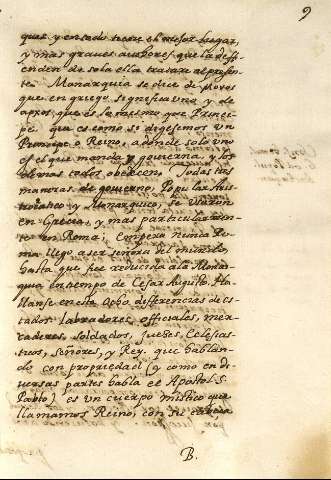 9
ques y en todo tiene el mejor lugar,
y mas graves autores que la defi
enden de sola ella tratare al presen
te. Monarquia se dice de monos
que en griego significa uno y de
arxos, que es lo mismo que Princi
pe. que es como si digesemos un
Principe o Reino, a donde solo uno
es el que manda y govierna, y los
demas todos obedecen. Todas tres
maneras de govierno, Popular Aris
tocratico y Monarquico, se usaron
en Grecia, y mas particularmen
te en Roma; empero nunca Ro
ma llego a ser señora del mundo,
hasta que fue reducida a la Monar
quia en tiempo de Cesar Augusto. Ha
llanse en esta Ocho differencias de es
tados labradores, officiales, mer
caderes, soldados, juezes, Eclesias
ticos, Señores, y Rey. que hablan
do con propriedad (y como en di
uersas partes habla el Apostol S.
Pablo) es un cuerpo mistico que
llamamos Reino, con su cabeza
B.